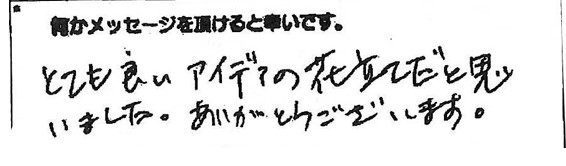 何かメッセージを頂けると幸いです。
とても良いアイデアの花立てだと思
いました。ありがとうございます。